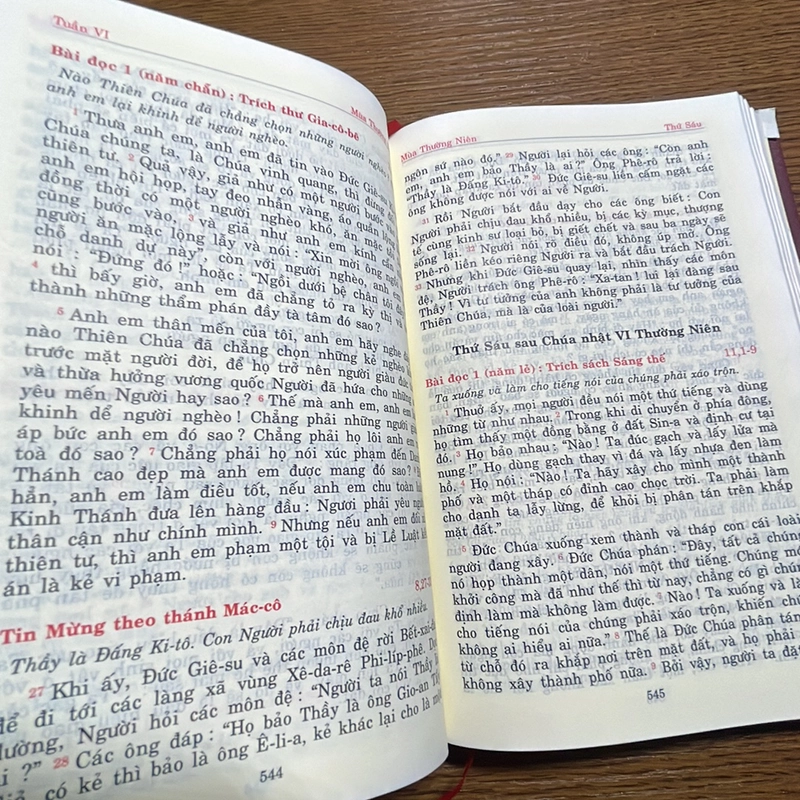 Tuần VI
Mùa Thườ
Bài đọc 1 (năm chẵn) : Trích thư Gia-cô-bê
Nào Thiên Chúa đã chẳng chọn những người nghèo
anh em lại khinh dể người nghèo.
1 Thưa anh em, anh em đã tin vào Đức Giê-su
Chúa chúng ta, là Chúa vinh quang, thì đừng
thiên tư. 2 Quả vậy, giả như có một người bước
anh em hội họp, tay đeo nhẫn vàng, áo quần
đồng thời có một người nghèo khó, ăn mặc
cũng bước vào, 3 và giả như anh em kính cẩn
người ăn mặc lộng lẫy và nói : “Xin mời ông
chỗ danh dự này”, còn với người nghèo, anh em
nói : “Đứng đó !” hoặc : “Ngồi dưới bệ chân tôi
4 thì bấy giờ, anh em đã chẳng tỏ ra kỳ thị và
thành những thẩm phán đầy tà tâm đó sao ?
5 Anh em thân mến của tôi, anh em hãy nghe
nào Thiên Chúa đã chẳng chọn những kẻ nghèo
trước mặt người đời, để họ trở nên người giàu đức
và thừa hưởng vương quốc Người đã hứa cho những
yêu mến Người hay sao ? 6 Thế mà anh em, anh em
khinh dể người nghèo ! Chẳng phải những người giàu
áp bức anh em đó sao ? Chẳng phải họ lôi anh em
toà đó sao ? 7 Chẳng phải họ nói xúc phạm đến Danh
Thánh cao đẹp mà anh em được mang đó sao ?
hẳn, anh em làm điều tốt, nếu anh em chu toàn luật
Kinh Thánh đưa lên hàng đầu : Ngươi phải yêu người
thân cận như chính mình. 9 Nhưng nếu anh em đối xử
thiên tư, thì anh em phạm một tội và bị Lề Luật kết
án là kẻ vi phạm.
8,27-3
Tin Mừng theo thánh Mác-cô
Thầy là Đấng Ki-tô. Con Người phải chịu đau khổ nhiều.
27 Khi ấy, Đức Giê-su và các môn đệ rời Bết-xai-đa
để đi tới các làng xã vùng Xê-da-rê Phi-líp-phê. Dọc
đường, Người hỏi các môn đệ : “Người ta nói Thầy là
ai ?” 28 Các ông đáp : “Họ bảo Thầy là ông Gio-an Tẩy
Giả, có kẻ thì bảo là ông Ê-li-a, kẻ khác lại cho là một
544
Mùa Thường Niên
Thứ Sáu
ngôn sứ nào đó.” 29 Người lại hỏi các ông : “Còn anh
em, anh em bảo Thầy là ai ?” Ông Phê-rô trả lời :
“Thầy là Đấng Ki-tô.” 30 Đức Giê-su liền cấm ngặt các
ông không được nói với ai về Người.
31 Rồi Người bắt đầu dạy cho các ông biết : Con
Người phải chịu đau khổ nhiều, bị các kỳ mục, thượng
tế cùng kinh sư loại bỏ, bị giết chết và sau ba ngày sẽ
sống lại. 32 Người nói rõ điều đó, không úp mở. Ông
Phê-rô liền kéo riêng Người ra và bắt đầu trách Người.
33 Nhưng khi Đức Giê-su quay lại, nhìn thấy các môn
đệ, Người trách ông Phê-rô : “Xa-tan ! lui lại đàng sau
Thầy ! Vì tư tưởng của anh không phải là tư tưởng của
Thiên Chúa, mà là của loài người.”
Thứ Sáu sau Chúa nhật VI Thường Niên
Bài đọc 1 (năm lẻ) : Trích sách Sáng thế 11,1-9
Ta xuống và làm cho tiếng nói của chúng phải xáo trộn.
1 Thuở ấy, mọi người đều nói một thứ tiếng và dùng
những từ như nhau. 2 Trong khi di chuyển ở phía đông,
họ tìm thấy một đồng bằng ở đất Sin-a và định cư tại
đó. 3 Họ bảo nhau : “Nào ! Ta đúc gạch và lấy lửa mà
nung !” Họ dùng gạch thay vì đá và lấy nhựa đen làm
hồ. 4 Họ nói : “Nào ! Ta hãy xây cho mình một thành
phố và một tháp có đỉnh cao chọc trời. Ta phải làm
cho danh ta lẫy lừng, để khỏi bị phân tán trên khắp
mặt đất.”
5 Đức Chúa xuống xem thành và tháp con cái loài
người đang xây. 6 Đức Chúa phán : “Đây, tất cả chúng
nó họp thành một dân, nói một thứ tiếng. Chúng mới
khởi công mà đã như thế thì từ nay, chẳng có gì chúng
định làm mà không làm được. 7 Nào ! Ta xuống và làm
cho tiếng nói của chúng phải xáo trộn, khiến chúng
không ai hiểu ai nữa.” 8 Thế là Đức Chúa phân tán
từ chỗ đó ra khắp nơi trên mặt đất, và họ phải
không xây thành phố nữa. 9 Bởi vậy, người ta đặt
545